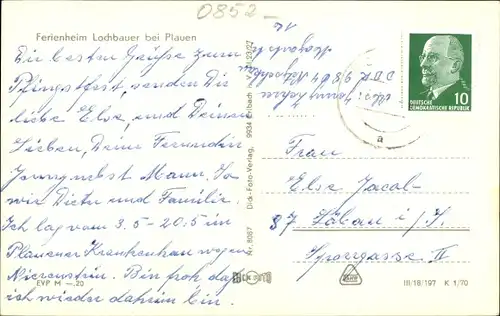 0852
Ferienheim Lochbauer bei Plauen
Die besten Grüße zum
Pfingstfest, senden Dir
liebe Else, und Deinen
Lieben, Deine Freundin
nebst Mann. So
wie Dieter und Familie.
Ich lag vom 3.5-20.5 im
Plauener Krankenhaus wegen
Nierenstein. Bin froh daß
ich wieder daheim bin.
EVP M —.20
Dick-Foto-Verlag, 9934 Erlbach i. V.
Nr. 8057
DEUTSCHE
DEMOKRATISCHE REPUBLIK
10
a
Frau
Else Jacob
87 Löbau i/S.
II
III/18/197 K 1/70